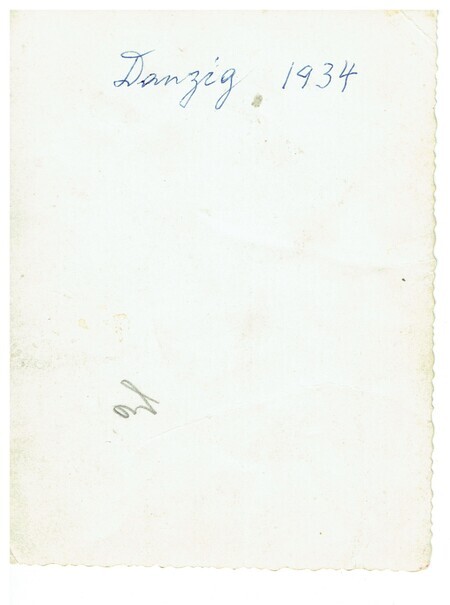 Danzig 1934